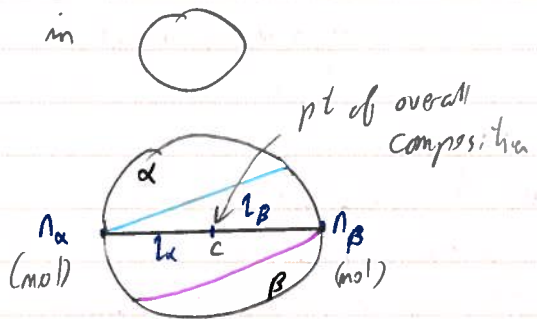 in
pt of overall
composition
α
l_β
n_α
l_α
c
n_β
(mol)
β
(mol)